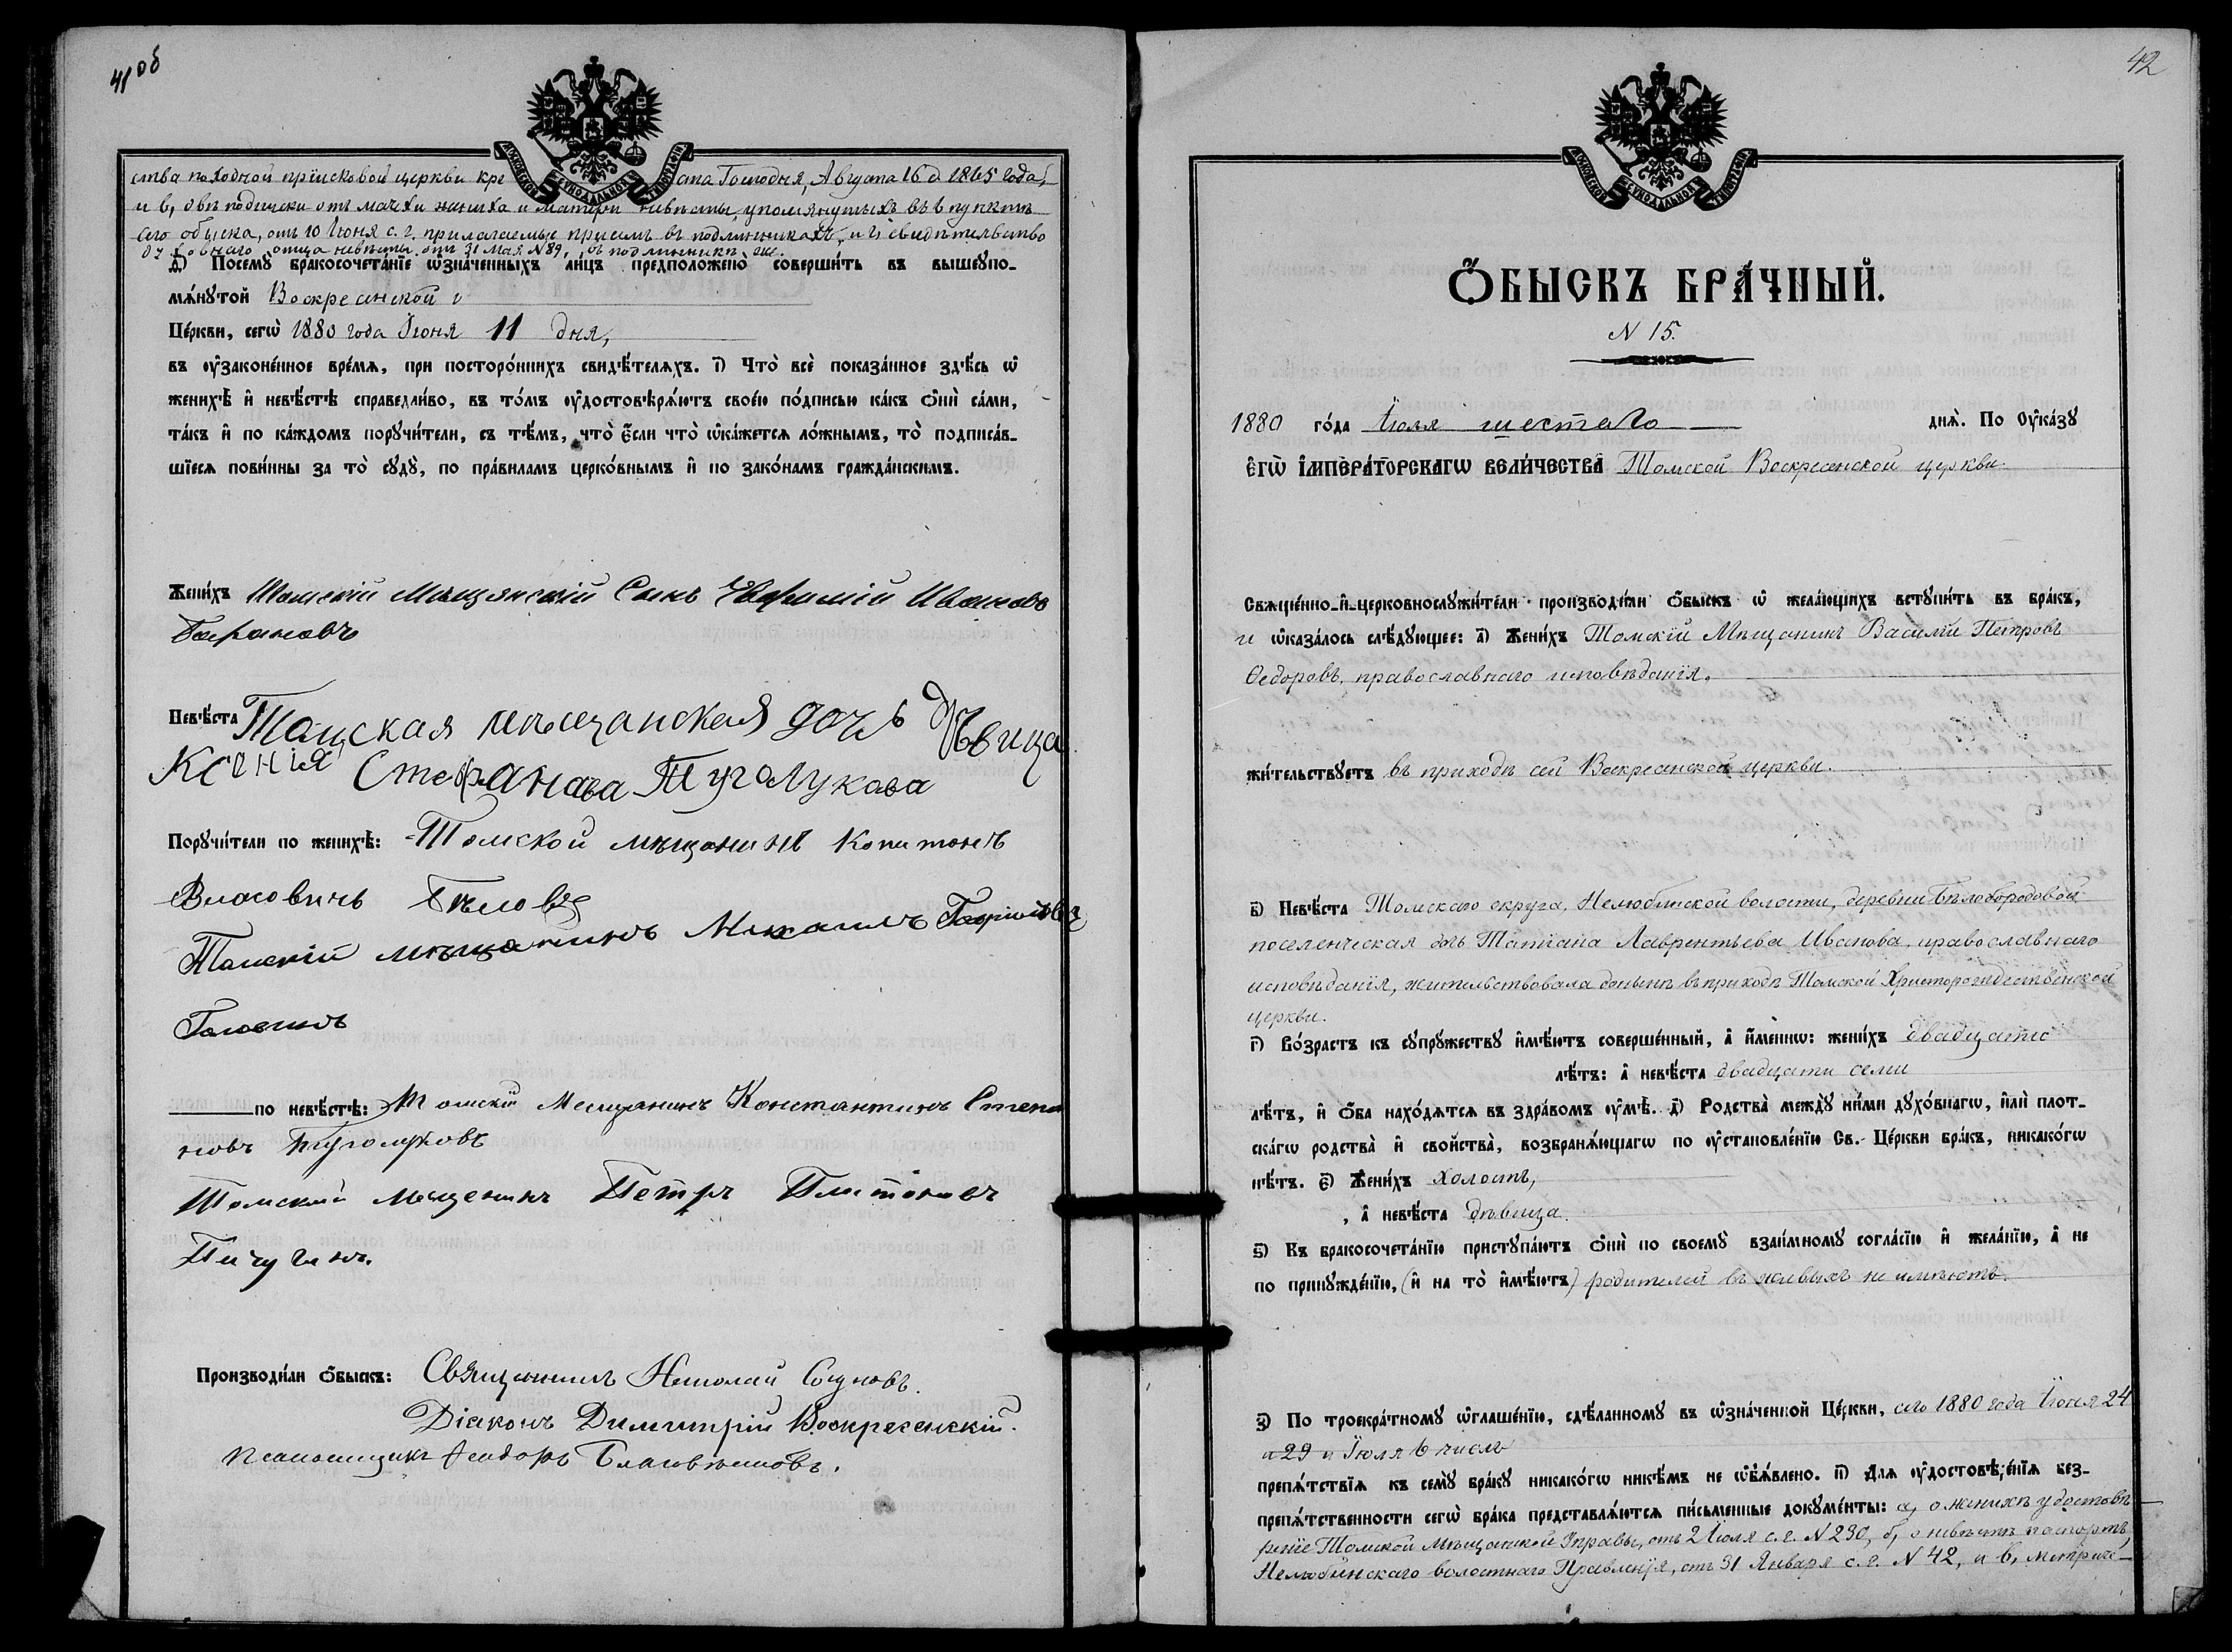 41 об
МОСКОВСКОЙ СѴНОДАЛЬНОЙ ТИПОГРАФІИ
ства походной пріисковой церкви кре ста Господня, Августа 16 д 1865 года,
и в, объ подписки отъ мачихи жениха и матери невѣсты, упомянутыхъ въ 6 пунктѣ
сего обыска, отъ 10 Іюня с. г. прилагаемыя при семъ въ подлинникахъ, и г, свидѣтельство
духовнаго отца невѣсты отъ 31 Мая № 89, въ подлинникѣ же.
д҃) Посемꙋ̀ бракосочета́нїе ѡ҆зна́ченныхъ ли́цъ предположено̀ соверши́ть въ вышеꙋпо-
мѧ́нꙋтой Воскресенской
Це́ркви, сегѡ̀ 1880 года Іюня 11 дня,
въ ᲂу҆зако́ненное вре́мѧ, при посторо́ннихъ свидѣ́телѧхъ. і҃) Что̀ всѐ показа́нное здѣ́сь ѡ҆
женихѣ̀ и҆ невѣ́стѣ справедли́во, въ то́мъ ᲂу҆достовѣрѧ́ютъ свое́ю по́дписью ка́къ ѻ҆нѝ са́ми,
та́къ и҆ по ка́ждомъ порꙋчи́тели, съ тѣ́мъ, что̀ є҆́сли что̀ ѡ҆ка́жетсѧ ло́жнымъ, то̀ подписа́в-
шїесѧ пови́нны за то̀ сꙋдꙋ̀, по пра́виламъ церко́внымъ и҆ по зако́намъ гражда́нскимъ.
Жени́хъ Томскій Мѣщанскій Сынъ Евфимій Ивановъ
Барановъ
Невѣ́ста Томская мѣщанская дочь дѣвица
Ксенія Стефанова Туголукова
Порꙋчи́тели по женихѣ̀: Томской мѣщанинъ Копитонъ
Власовичь Бѣловъ
Томскій мѣщанинъ Михаилъ
по невѣ́стѣ: Томскій Мещанинъ Константинъ Степа
новъ Туголуковъ
Томский мещенинъ Петръ Платоновъ
Пичугинъ.
Производи́ли ѻ҆́быскъ: Священникъ Николай Сосуновъ.
Діаконъ Димитрій Воскресенскій.
Псаломщикъ Феодоръ Благовѣщ
42
МОСКОВСКОЙ СѴНОДАЛЬНОЙ ТИПОГРАФІИ
Ѻ҆́БЫСКЪ БРА́ЧНЫЙ.
N 15.
1880 го́да Іюля шестаго днѧ̀. По Оу҆ка́зꙋ
Є҆гѡ̀ І҆мпера́торскагѡ Вели́чества Томской Воскресенской церкви
Свѧще́нно-и҆-церковнослꙋжи́тели производи́ли ѻ҆́быскъ ѡ҆ жела́ющихъ встꙋпи́ть въ бра́къ,
и ѡ҆каза́лось слѣ́дꙋющее: а҃) Жени́хъ Томскій Мѣщанинъ Василій Петровъ
Ѳедоровъ, православнаго исповѣданія.
жи́тельствꙋетъ въ приходѣ сей Воскресенской церкви.
в҃) Невѣ́ста Томскаго округа, Нелюбинской волости, деревни Бѣлобородовой
поселенческая дочь Татіана Лаврентьева Иванова, православнаго
исповѣданія, жительствовала донынѣ въ приходѣ Томской Христорождественской
церкви.
г҃) Во́зрастъ къ сꙋпрꙋ́жествꙋ и҆мѣ́ютъ соверше́нный, а҆ и҆́меннѡ: жени́хъ двадцати
лѣ́тъ: а҆ невѣ́ста двадцати семи
лѣ́тъ, и҆ ѻ҆́ба нахо́дѧтсѧ въ здра́вомъ ᲂу҆мѣ̀. д҃) Родства̀ междꙋ̀ ни́ми дꙋхо́внагѡ, и҆лѝ плот-
ска́гѡ родства̀ и҆ сво́йства̀, возбранѧ́ющагѡ по ᲂу҆становле́нїю Св. Це́ркви бра́къ, никако́гѡ
нѣ́тъ. є҃) Жени́хъ холостъ,
, а҆ невѣ́ста дѣвица.
ѕ҃) Къ бракосочета́нїю пристꙋпа́ютъ ѻ҆нѝ по своемꙋ̀ взаи́мномꙋ согла́сїю и҆ жела́нїю, а҆ не
по принꙋжде́нїю, (и҆ на то̀ и҆мѣ́ютъ) родителей въ живыхъ не имѣютъ.
з҃) По троекра́тномꙋ ѡ҆глаше́нїю, сдѣ́ланномꙋ въ ѡ҆зна́ченной Це́ркви, сего 1880 года Іюня 24
и 29 и Іюля 6 числъ
препѧ́тствїѧ къ семꙋ̀ бра́кꙋ никако́гѡ никѣ́мъ не ѡ҆б̾ѧ́влено. и҃) Для ᲂу҆достовѣре́нїѧ без-
препѧ́тственности сегѡ̀ бра́ка представлѧ́ютсѧ пи́сьменные докꙋме́нты: а, о женихѣ удостовѣ-
реніе Томской Мѣщанской Управы, отъ 2 Іюля с. г. N 230, б, о невѣстѣ паспортъ,
Нелюбинскаго волостнаго Правленія, отъ 31 Января с. г. N 42, и в, метриче-